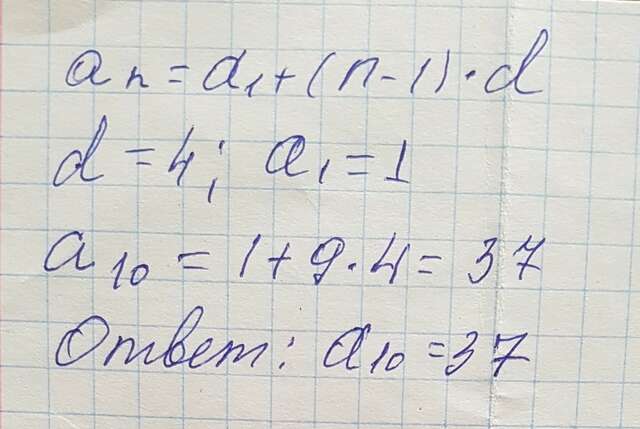 aₙ = a₁ + (n - 1) · d
d = 4; a₁ = 1
a₁₀ = 1 + 9 · 4 = 37
Ответ: a₁₀ = 37